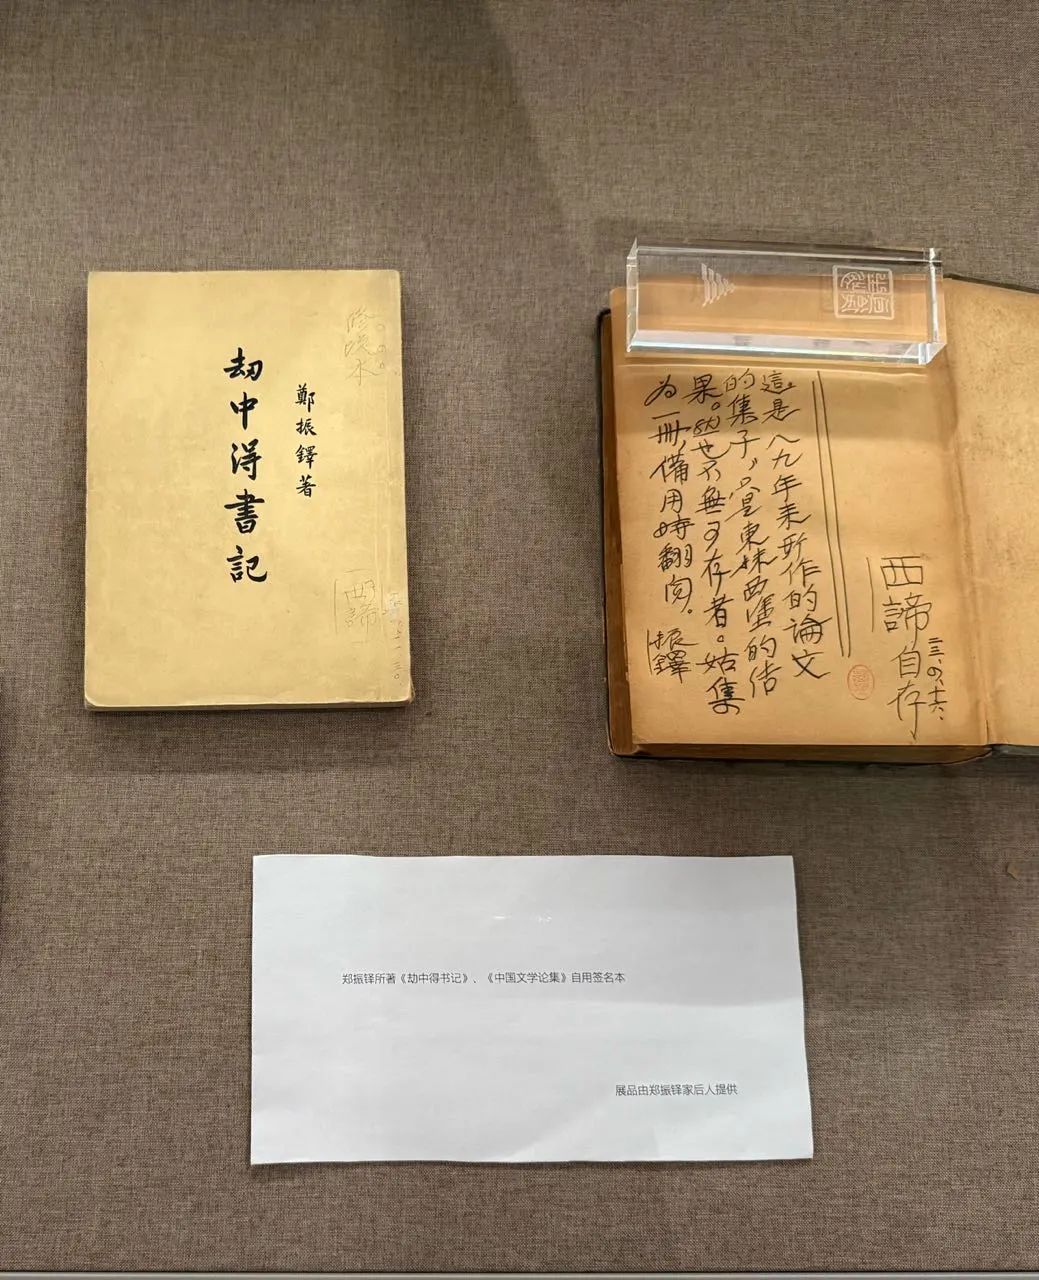 劫中得書記
鄭振鐸著
修改本
西諦
這是八九年來所作的論文
的集子,只是東抹西塗的結
果。然也不無可存者。姑集
为一冊,備用時翻閱。
振鐸
西諦自存
二三、四、十六、
郑振铎所著《劫中得书记》、《中国文学论集》自用签名本
展品由郑振铎家后人提供